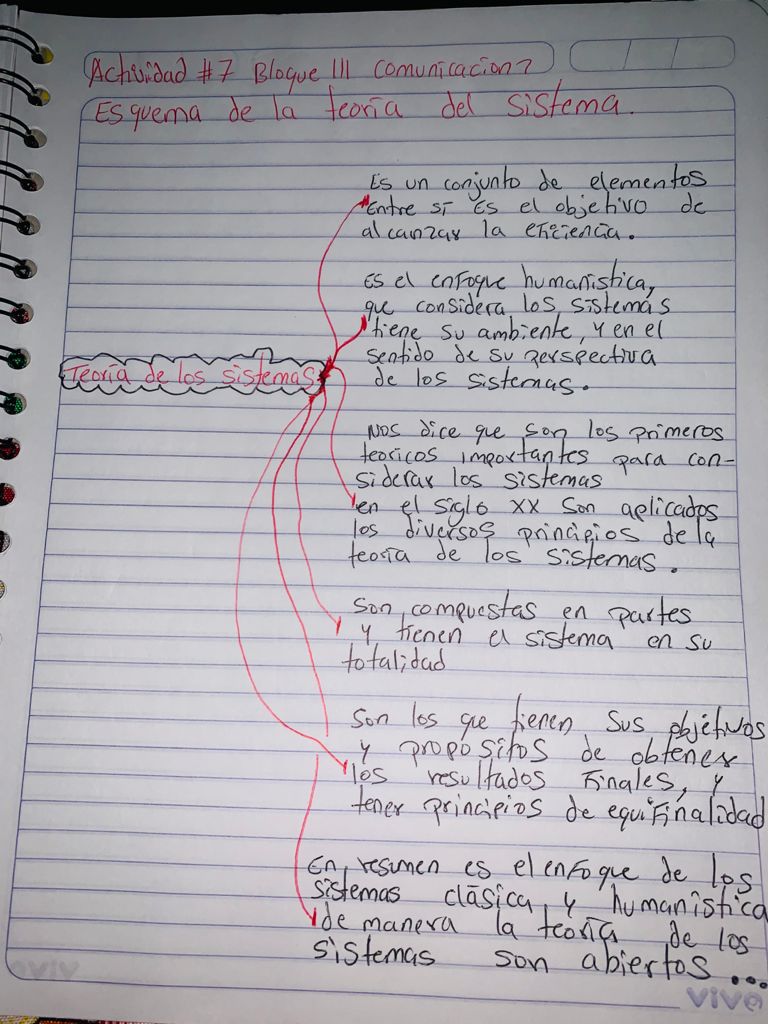 Actividad #7 Bloque III Comunicacion 2
Esquema de la teoría del sistema.
Es un conjunto de elementos
Entre sí Es el objetivo de
alcanzar la eficiencia.
Es el enfoque humanística,
que considera los sistemas
tiene su ambiente, y en el
sentido de su perspectiva
de los sistemas.
Teoría de los sistemas
Nos dice que son los primeros
teoricos importantes para con-
siderar los sistemas
en el siglo XX son aplicados
los diversos principios de la
teoría de los sistemas.
Son compuestas en partes
y tienen el sistema en su
totalidad
Son los que tienen sus objetivos
y propositos de obtener
los resultados finales, y
tener principios de equifinalidad
En resumen es el enfoque de los
sistemas clásica y humanística
de manera la teoría de los
sistemas son abiertos...
vive